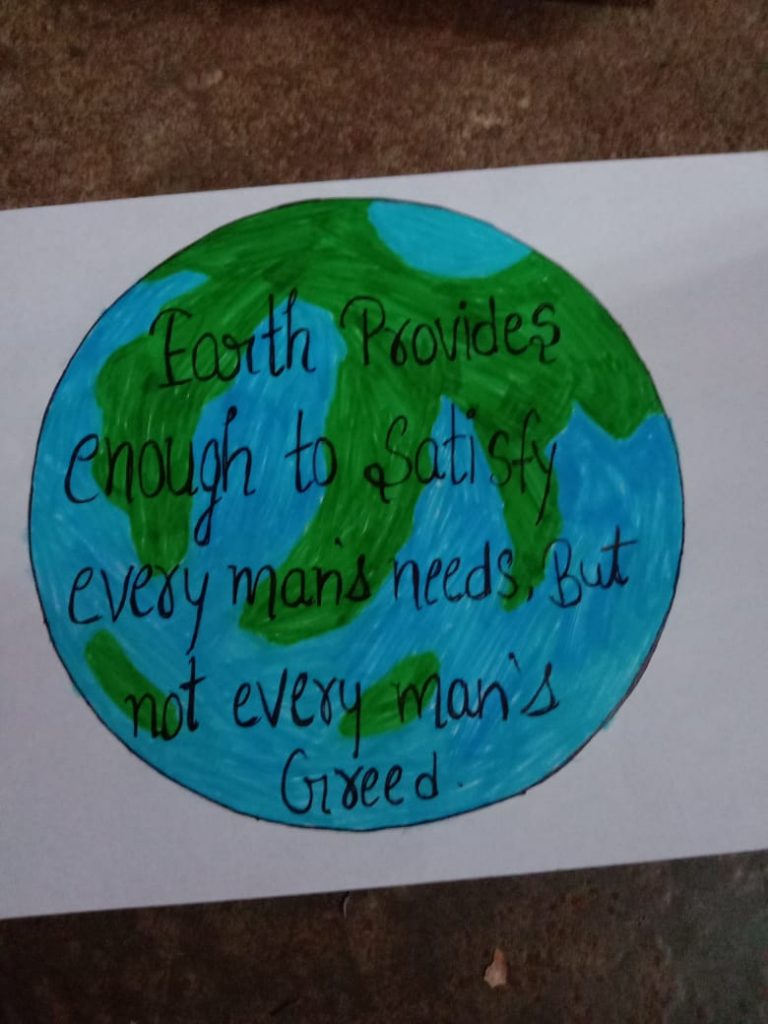 Earth Provides
enough to Satisfy
every man's needs, But
not every man's
Greed.